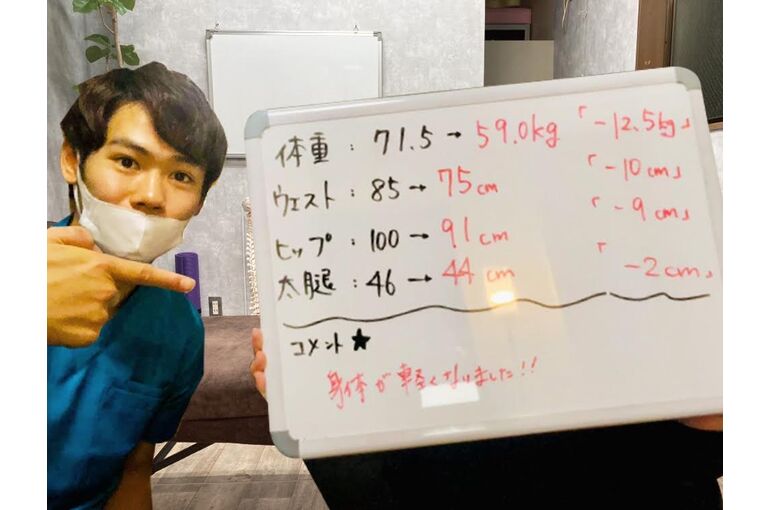 体重 : 71.5 → 59.0kg 「-12.5kg」
ウェスト : 85 → 75cm 「-10cm」
ヒップ : 100 → 91cm 「-9cm」
太腿 : 46 → 44cm 「-2cm」
コメント★
身体が軽くなりました!!